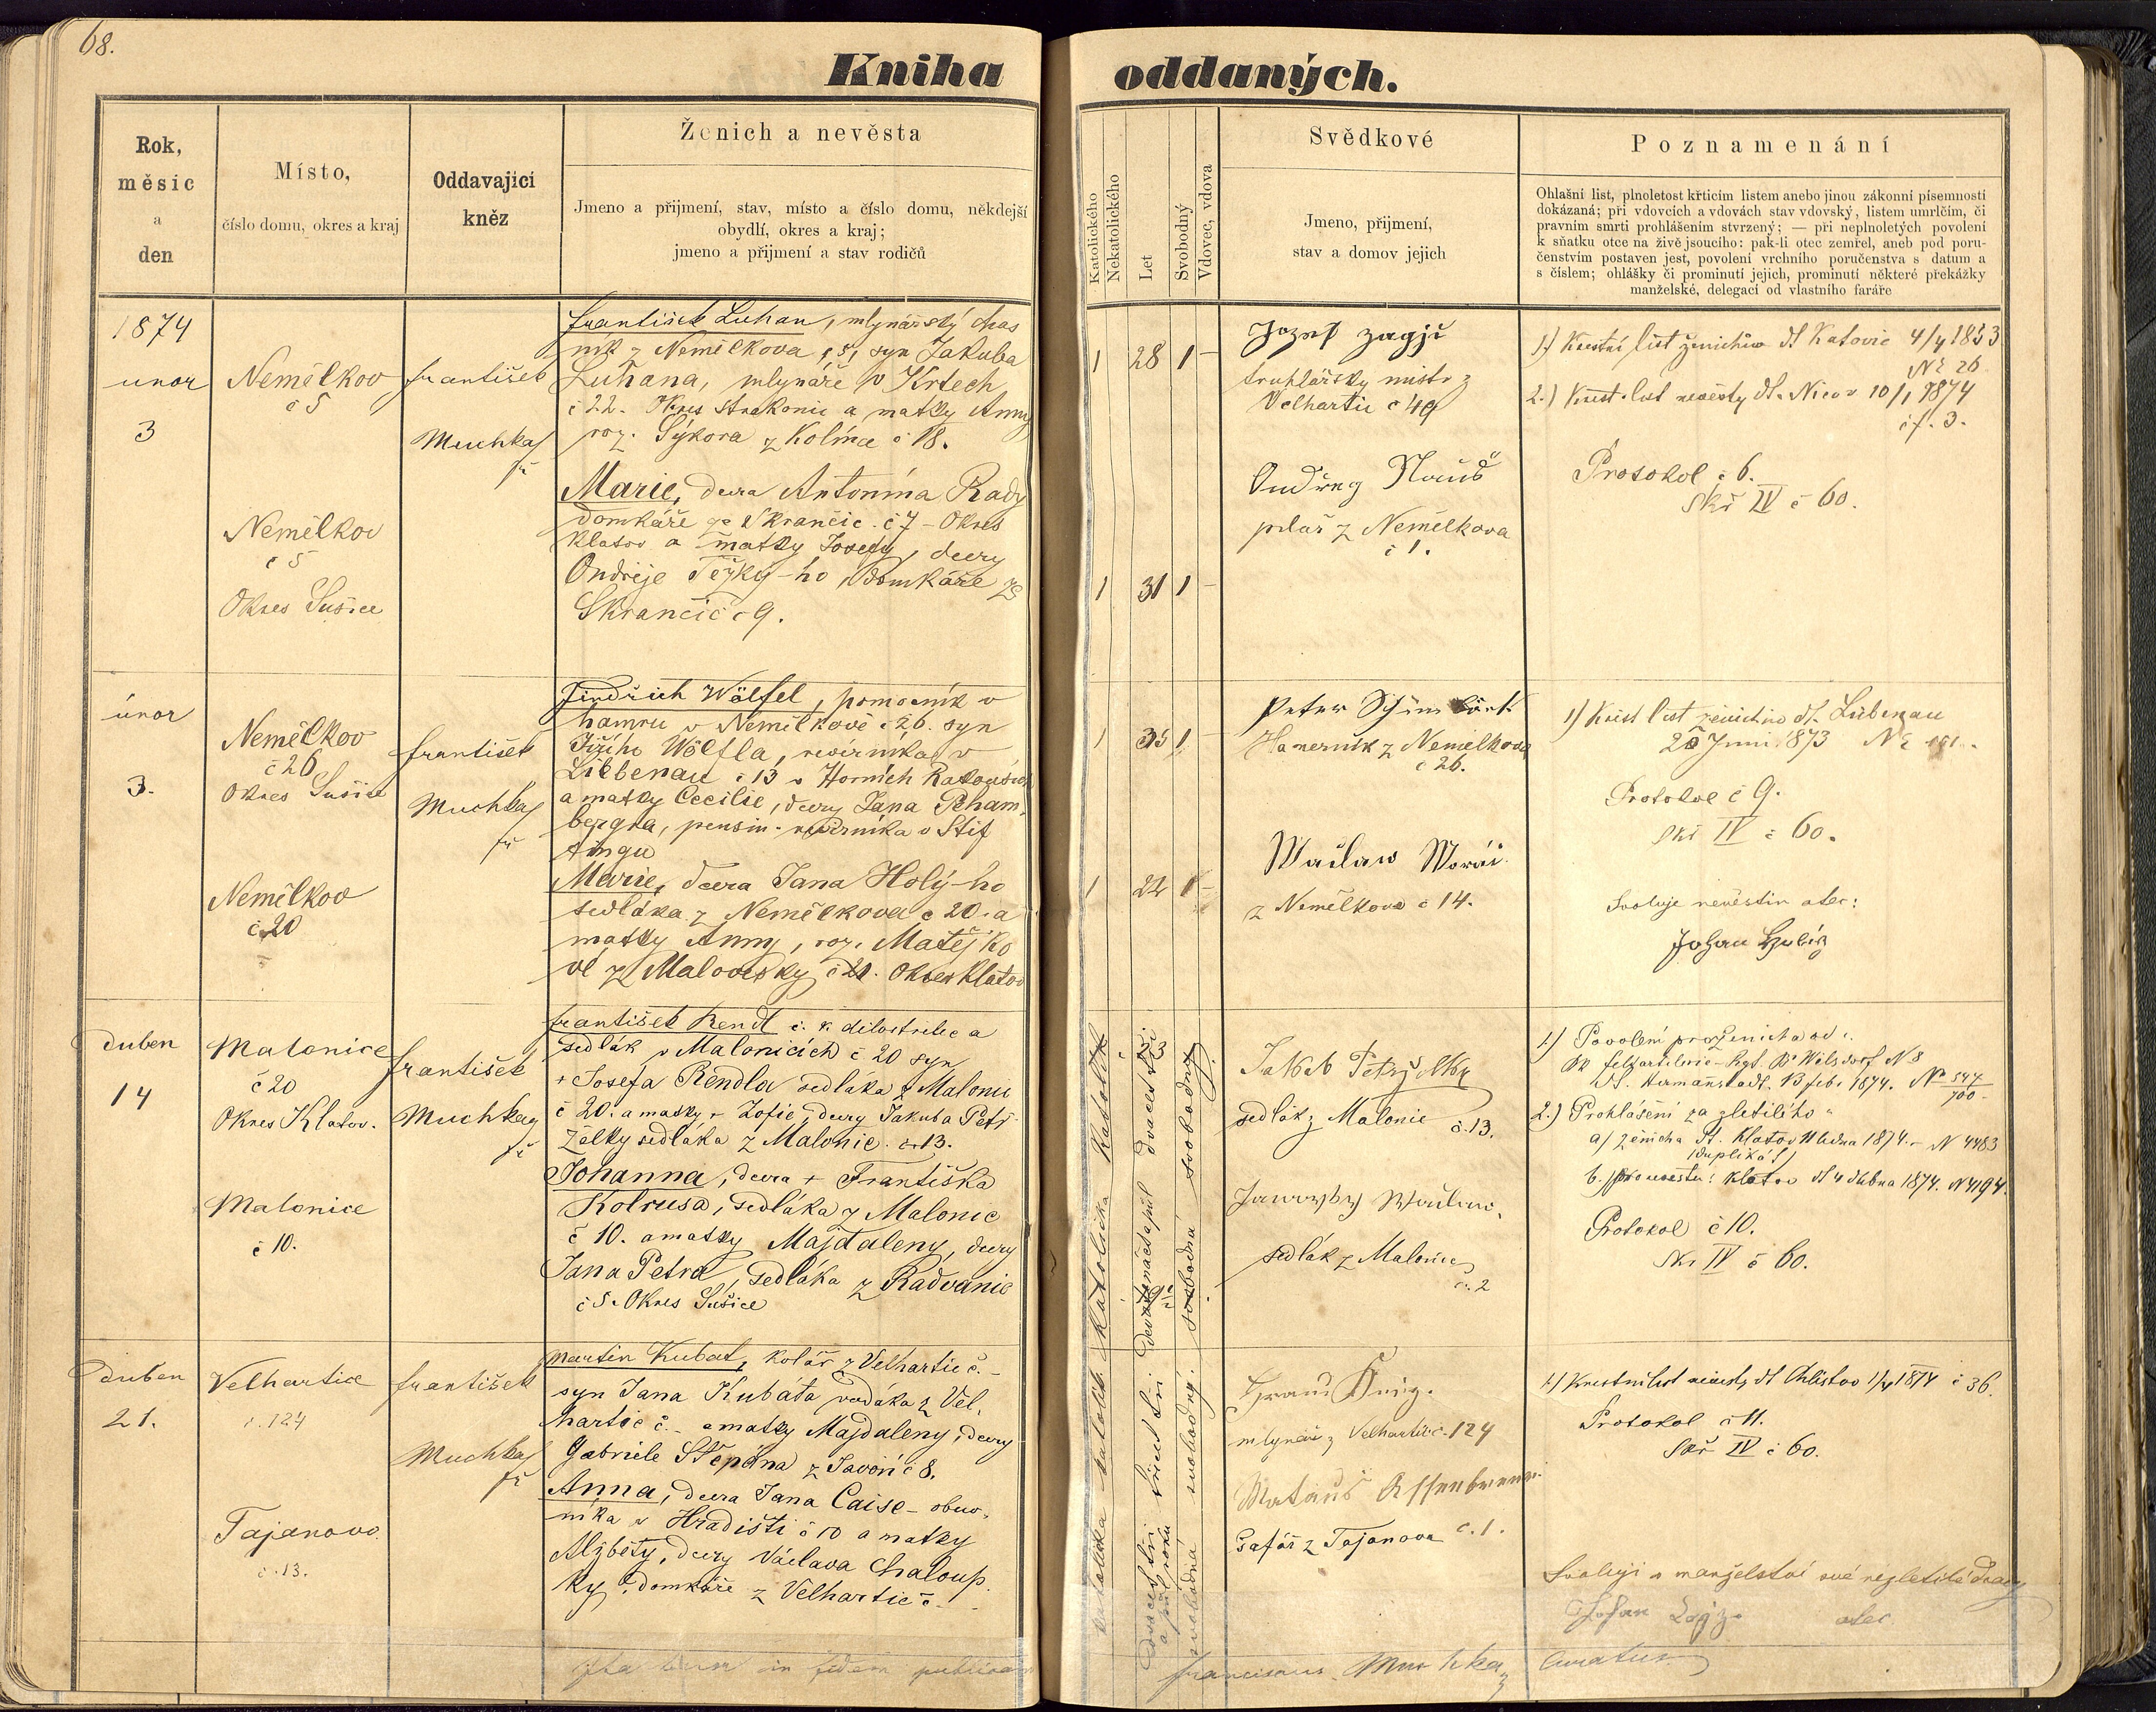 68.
Kniha oddaných.
Rok,
měsíc
a
den
Místo,
číslo domu, okres a kraj
Oddavající
kněz
Ženich a nevěsta
Jmeno a přijmení, stav, místo a číslo domu, někdejší
obydlí, okres a kraj;
jmeno a přijmení a stav rodičů
Katolického
Nekatolického
Let
Svobodný
Vdovec, vdova
Svědkové
Jmeno, přijmení,
stav a domov jejich
Poznamenání
Ohlašní list, plnoletost křticím listem anebo jinou zákonní písemností
dokázaná; při vdovcích a vdovách stav vdovský, listem umrlčím, či
pravním smrti prohlášením stvrzený; — při neplnoletých povolení
k sňatku otce na živě jsoucího: pak-li otec zemřel, aneb pod poru-
čenstvím postaven jest, povolení vrchního poručenstva s datum a
s číslem; ohlášky či prominutí jejich, prominutí některé překážky
manželské, delegací od vlastního faráře
1874
unor
3
Němělkov
č 5
František
Muchka
Němělkov
č 5
Okres Sušice
František Luhan, mlynářský chas
ník z Němělkova č 5, syn Jakuba
Luhana, mlynáře v Krtech
č 22. Okres Strakonic a matky Anny
roz. Sýkora z Kolína č 18.
Marie, dcera Antonína Rady
domkáře ze Skrančic. č 7 - Okres
Klatov a matky Josefy, dcery
Ondřeje Težký-ho, domkáře ze
Skrančic č 9.
1 28 1 -
1 31 1 -
Jozef
truhlářsky mistr z
Velhartic č 49
z Němělkova
č 1.
1.) Křestní list ženichův dt Katovic 4/4 1853
No 26
2.) Křest. list nevěsty dt. Nicov 10/1 1874
čf. 3.
Protokol č 6.
Skř IV č 60.
únor
3.
Němělkov
č 26
Okres Sušice
František
Muchka
Němělkov
č 20
Jindřich Wölfel, pomocník v
hamru v Němělkově č 26. syn
Jiřího Wölfla, revírníka v
Liebenau č 13 v Horních Rakousích
a matky Cecilie, dcery Jana Peham
bergra, pensin. revírníka v Stif
tingu
Marie, dcera Jana Holý-ho
sedláka z Němělkova č 20. a
matky Anny, roz. Matějko
vé z Malovesky č 21. Okres Klatov
1 35 1 -
1 22 1 -
Peter
Hamerník z Němelkova
č 26.
Wačlaw
z Němělkova č 14.
1) Křest list ženichův dt. Liebenau
Juni 1873
Protokol č 9.
Skř IV č 60.
Svoluje nevěstin otec:
Johan
duben
14
Malonice
č 20
Okres Klatov.
František
Muchka
Malonice
č 10.
František Rendl c. k. dělostřelec a
sedlák v Malonicích č 20 syn
+ Josefa Rendla sedláka z Malonic
č 20. a matky + Žofie, dcery Jakuba Petr
želky sedláka z Malonic. č 13.
Johanna, dcera + Františka
Kolrusa, sedláka z Malonic
č 10. a matky Majdaleny, dcery
Jana Petra, sedláka z Radvanic
č 5. Okres Sušice
Katolická Katolík
svobodná svobodný
Jakub Petržilka
sedlák z Malonic č. 13.
sedlák z Malonic
č. 2
1.) Povolení pro ženicha od
Hermannstadt. 13 feb. 1874. No 547/700
2.) Prohlášení za zletilého
a) ženicha dt. Klatov 1874. - N 4483
(Duplikát)
b.) pro nevěstu: Klatov dt 4 dubna 1874. N 4194.
Protokol č 10.
Skř IV č 60.
duben
21.
Velhartice
č. 124
František
Muchka
Tajanovo
č. 13.
Martin Kubat, kolář z Velhartic č. -
syn Jana Kubáta z Vel.
hartic č. - a matky Majdaleny, dcery
Gabriele Štěpána z Javoří č 8.
Anna, dcera Jana Caise - obuv.
níka v Hradišti č 10 a matky
Alžběty, dcery Václava Chaloup.
ky, domkáře z Velhartic č. -
mlynář z Velhartic č. 124
Šafář z Tajanova č. 1.
1.) Křestní list nevěsty dt Chlistov 1/4 1874 č 36.
Protokol č 11.
Skř IV č 60.
Svoluji v manželství své nezletilé dcery
Johan otec
Ita in fidem publicam
Franciscus Muchka, Curatus